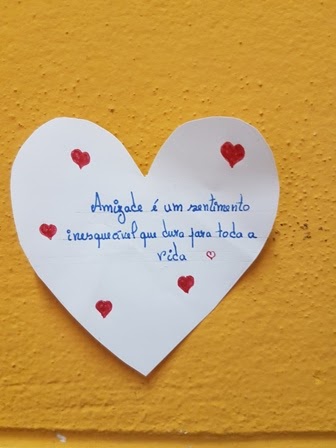 Amizade é um sentimento
inesquecível que dura para toda a
vida